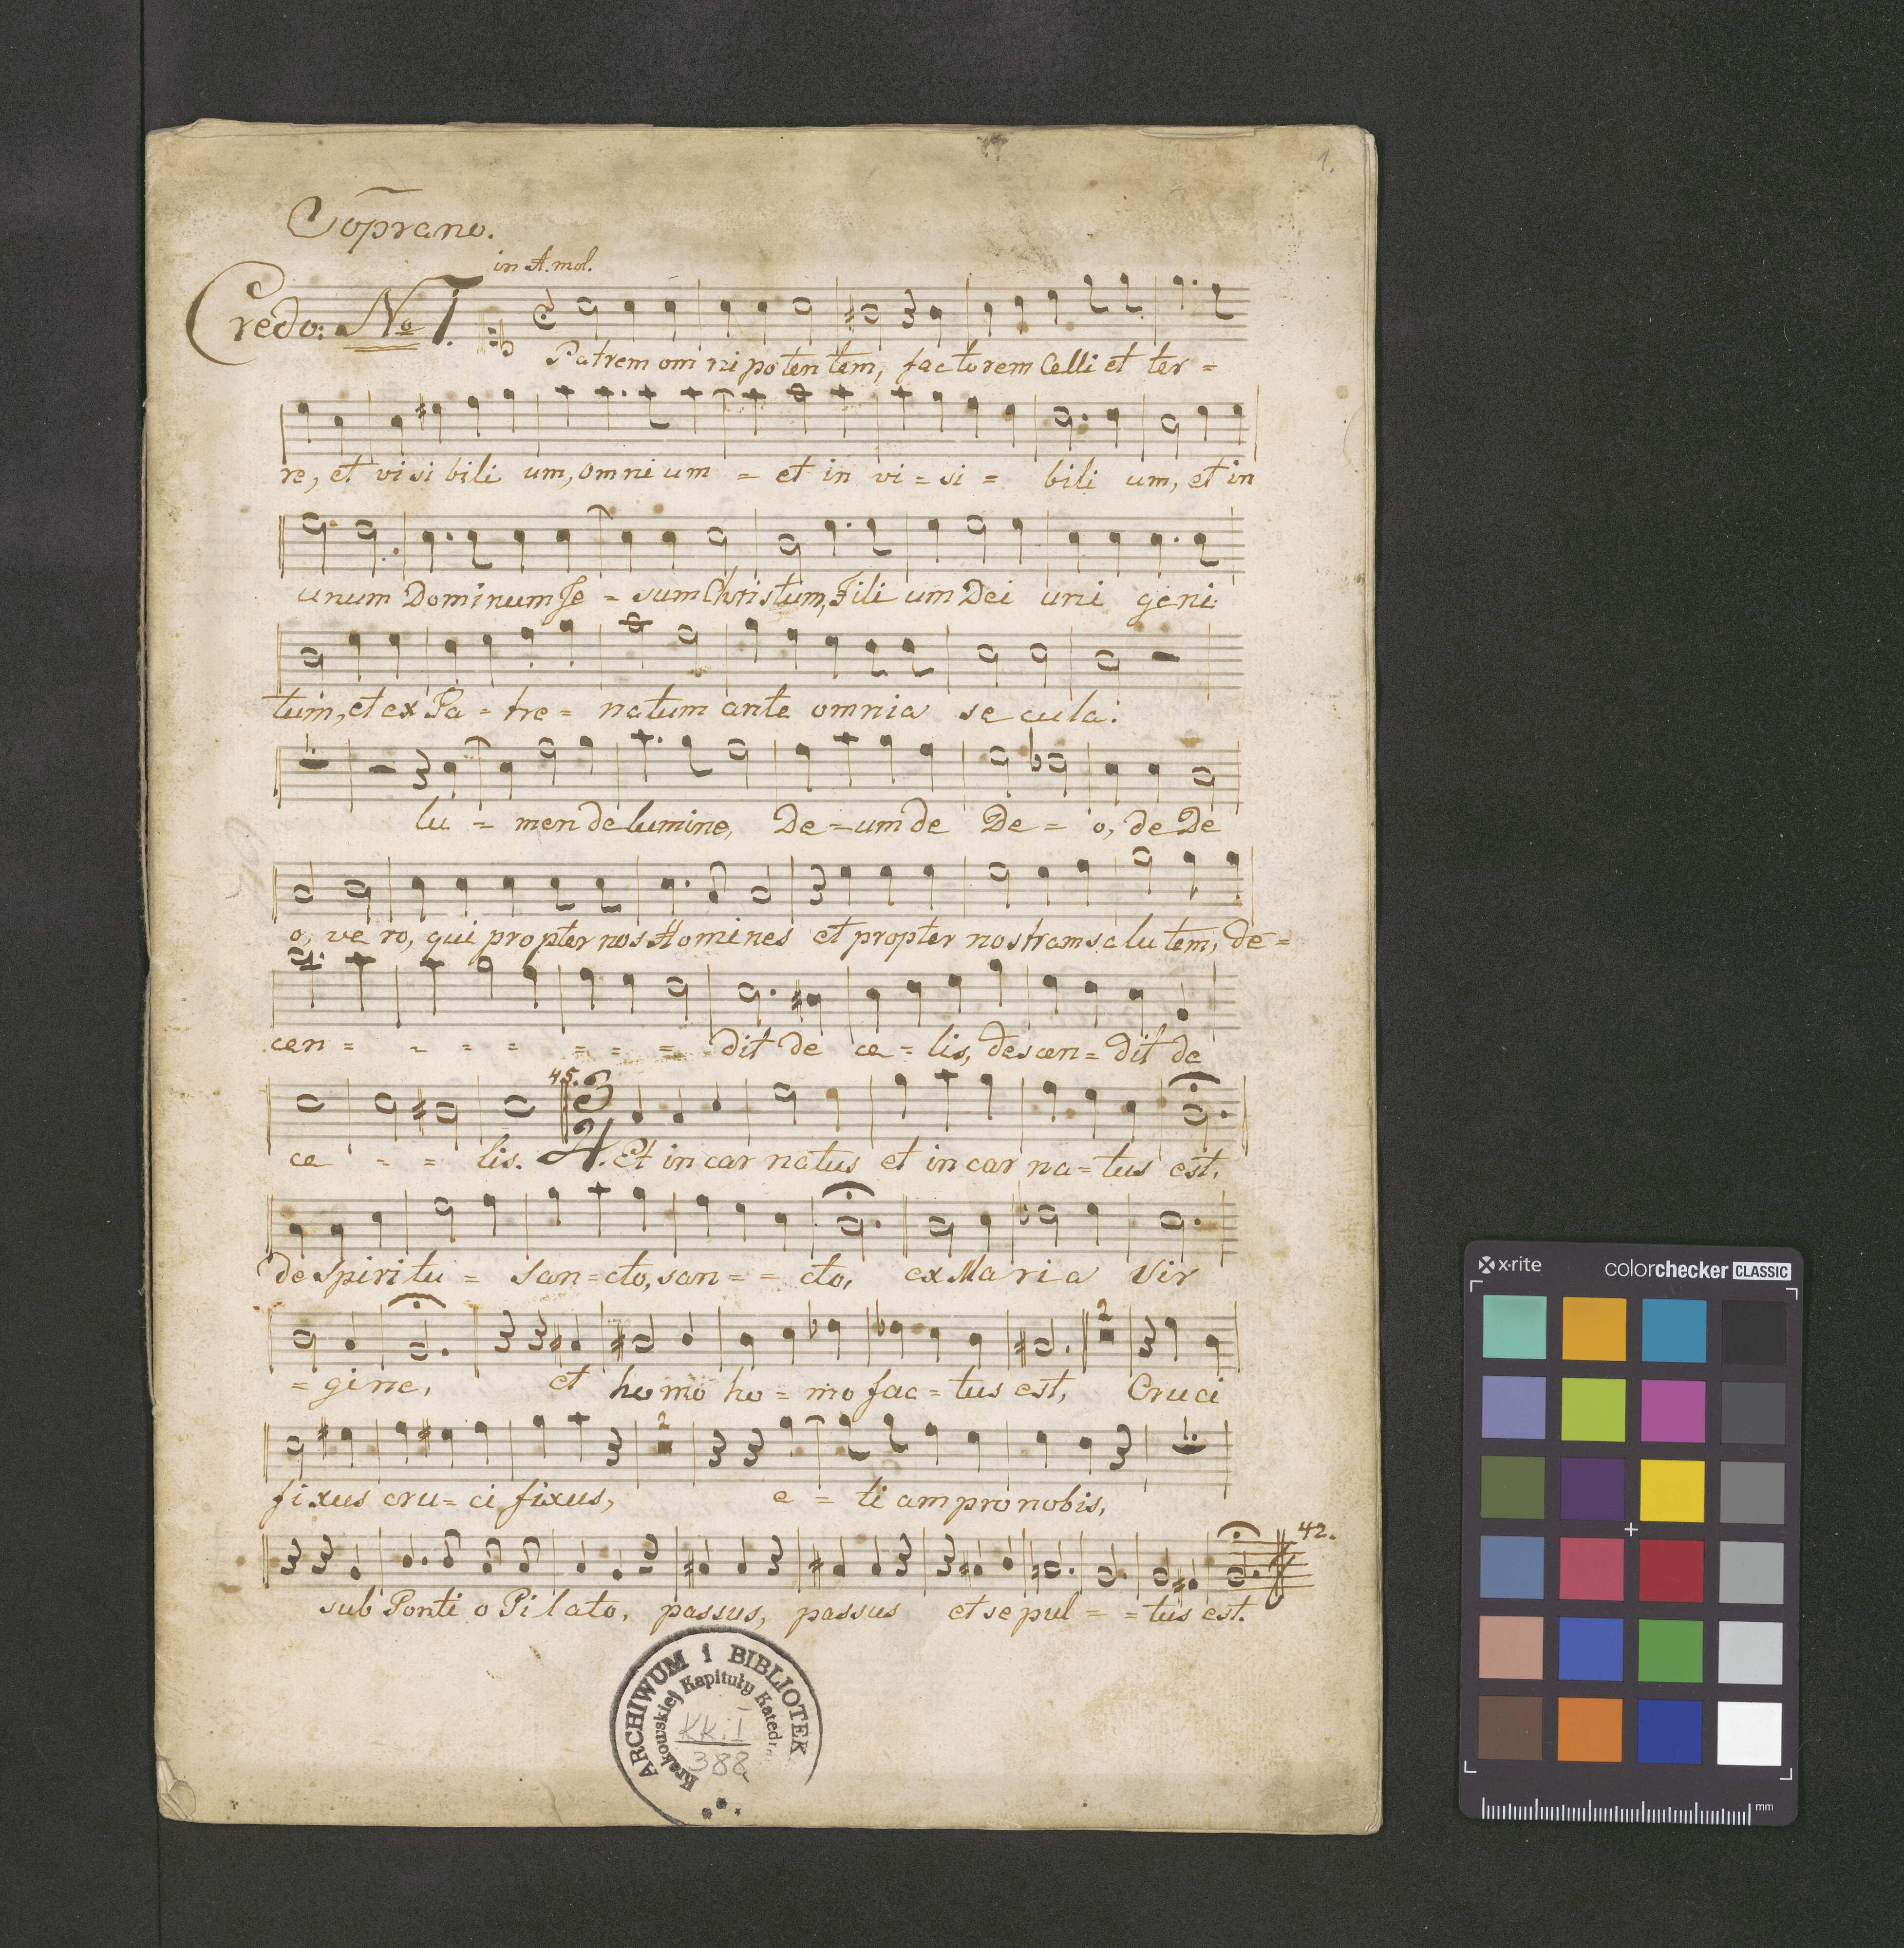 1.
Soprano.
in A. mol.
Credo: No 1.
Patrem om ni po ten tem, fac to rem Celli et ter =
re, et vi si bili um, omni um = et in vi = si = bili um, et in
unum Dominum Je = sum Christum, Fili um Dei uni geni
tum, et ex Pa = tre = natum ante omnia se cula:
lu = men de lumine, De = um de De = o, de De
o, ve ro, qui propter nos Homines et propter nostram salu tem, de =
cen = = = = = = = dit de ce = lis, descen = dit de
45. 3
4.
ce = = lis. Et in car natus et in car na = tus est,
de Spiri tu = san = cto, san = = cto, ex Ma ri a Vir
2
= gine, et homo ho = mo fac = tus est, Cru ci
2
fixus cru = ci fixus, e = ti am pro nobis,
42.
sub Ponti o Pi lato, passus, passus et se pul = = tus est.
ARCHIWUM i BIBLIOTEK
Krakowskiej Kapituły Katedr
KK. I
388
x-rite
colorchecker CLASSIC
mm